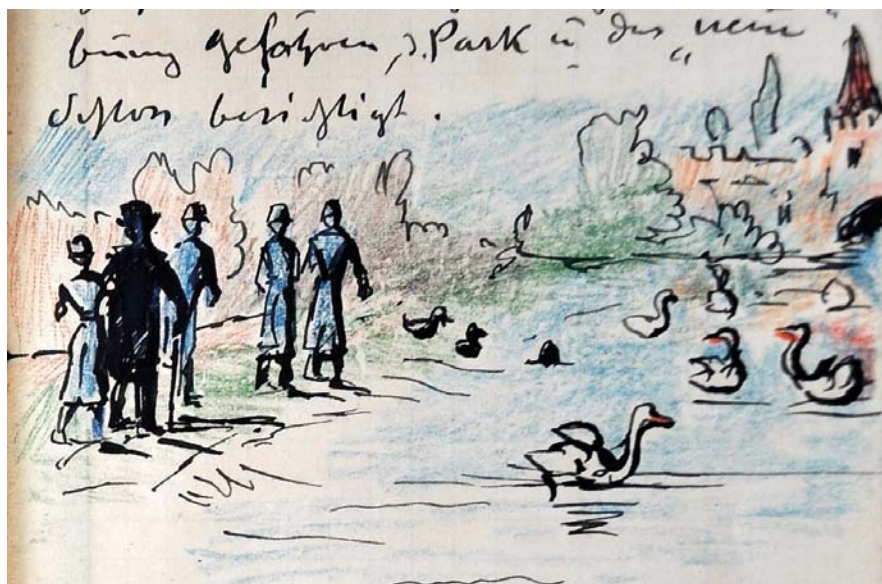 bung gefahren, d. Park u das "neue"
Schloss besichtigt.